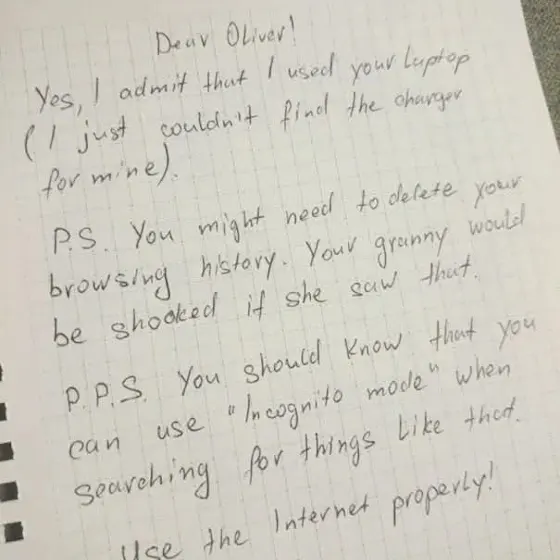 Dear Oliver!
Yes, I admit that I used your laptop
(I just couldn't find the charger
for mine).
P.S. You might need to delete your
browsing history. Your granny would
be shocked if she saw that.
P.P.S. You should know that you
can use "Incognito mode" when
searching for things like that.
Use the Internet properly!